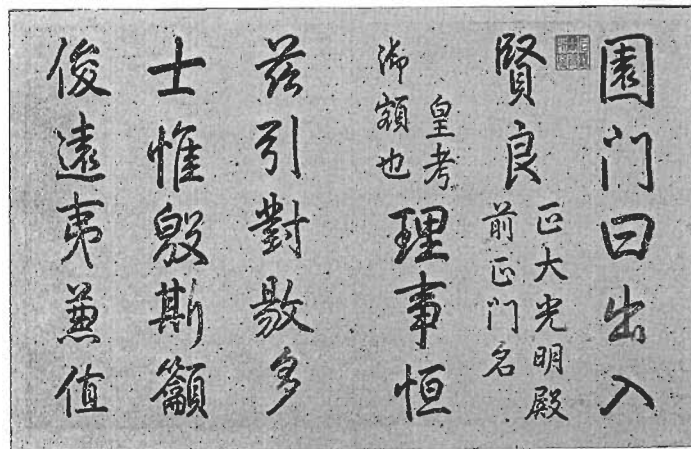 園門曰出入
賢良
正大光明殿
前正門名
皇考
御額也
理事恒
茲引對敭多
士惟殷斯籲
俊遠夷兼值